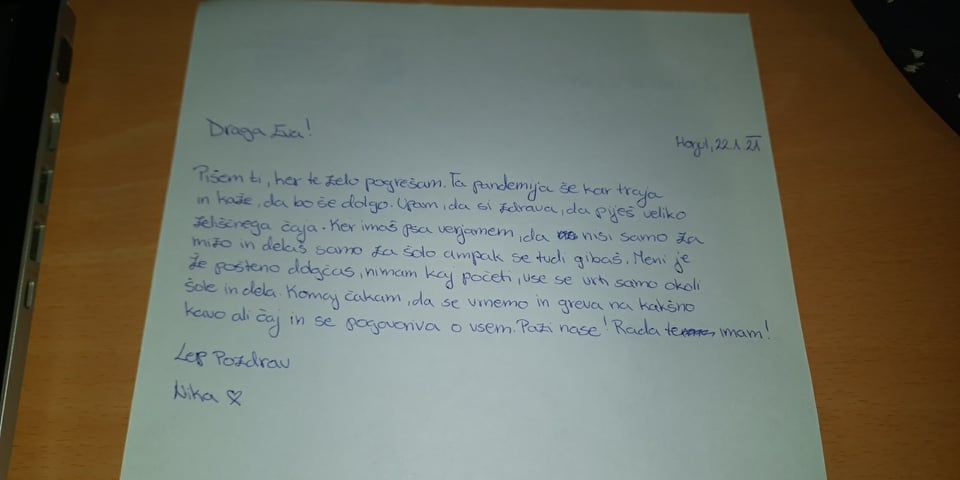 Draga Eva!
Horjul, 22.1.21
Pišem ti, ker te zelo pogrešam. Ta pandemija še kar traja
in kaže, da bo še dolgo. Upam, da si zdrava, da piješ veliko
zeliščnega čaja. Ker imaš psa verjamem, da nisi samo za
mizo in delaš samo za šolo ampak se tudi gibaš. Meni je
že pošteno dolgčas, nimam kaj početi, vse se vrti samo okoli
šole in dela. Komaj čakam, da se vrnemo in greva na kakšno
kavo ali čaj in se pogovoriva o vsem. Pazi nase! Rada te imam!
Lep Pozdrav
Nika